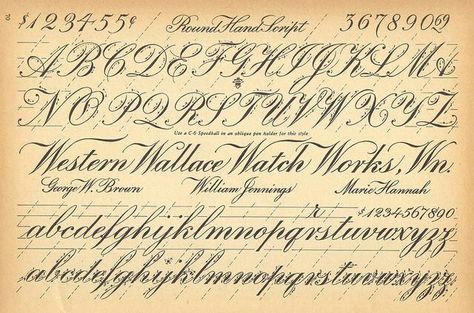 $123455¢ Round Hand Script 3678900
ABCDEFGHIJKLM
NOPQRSTUVWXYZ
Use a C-6 Speedball in an oblique pen holder for this style
Western Wallace Watch Works, Wn.
George W. Brown William Jennings Marie Hannah
r $1234567890
abcdefghijklmnopqrstuvwxyzz
abcdefghijklmnopqrstuvwxyzz